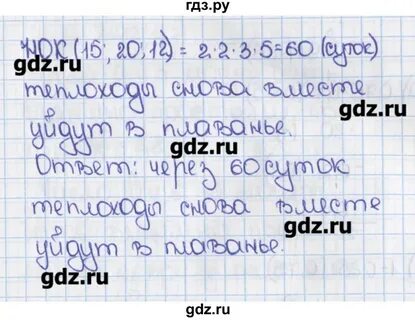 гдз.ру
НОК (15; 20; 12) = 2·2·3·5=60 (суток)
gdz.ru gdz.ru
теплоходы снова вместе
уйдут в плаванье.
gdz.ru
Ответ: через 60 суток
gdz.ru
теплоходы снова вместе
gdz.ru
уйдут в плаванье.
gdz.ru
gdz.ru